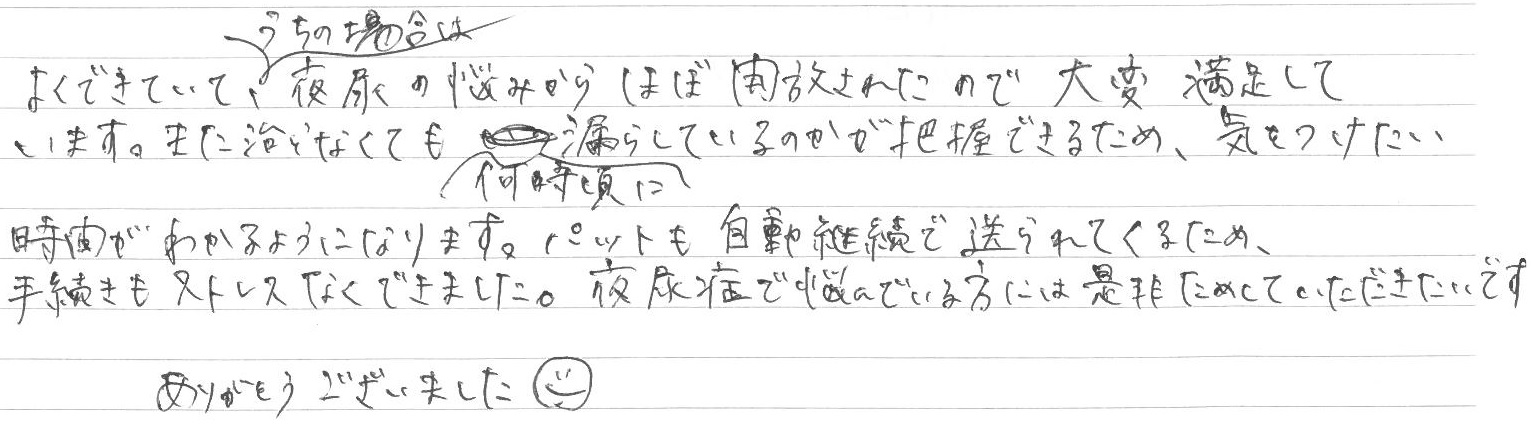 うちの場合は
よくできていて、夜尿の悩みからほぼ開放されたので大変満足して
います。また治らなくても漏らしているのかが把握できるため、気をつけたい
何時頃に
時間がわかるようになります。パットも自動継続で送られてくるため、
手続きもストレスなくできました。夜尿症で悩んでいる方には是非ためしていただきたいです
ありがとうございました